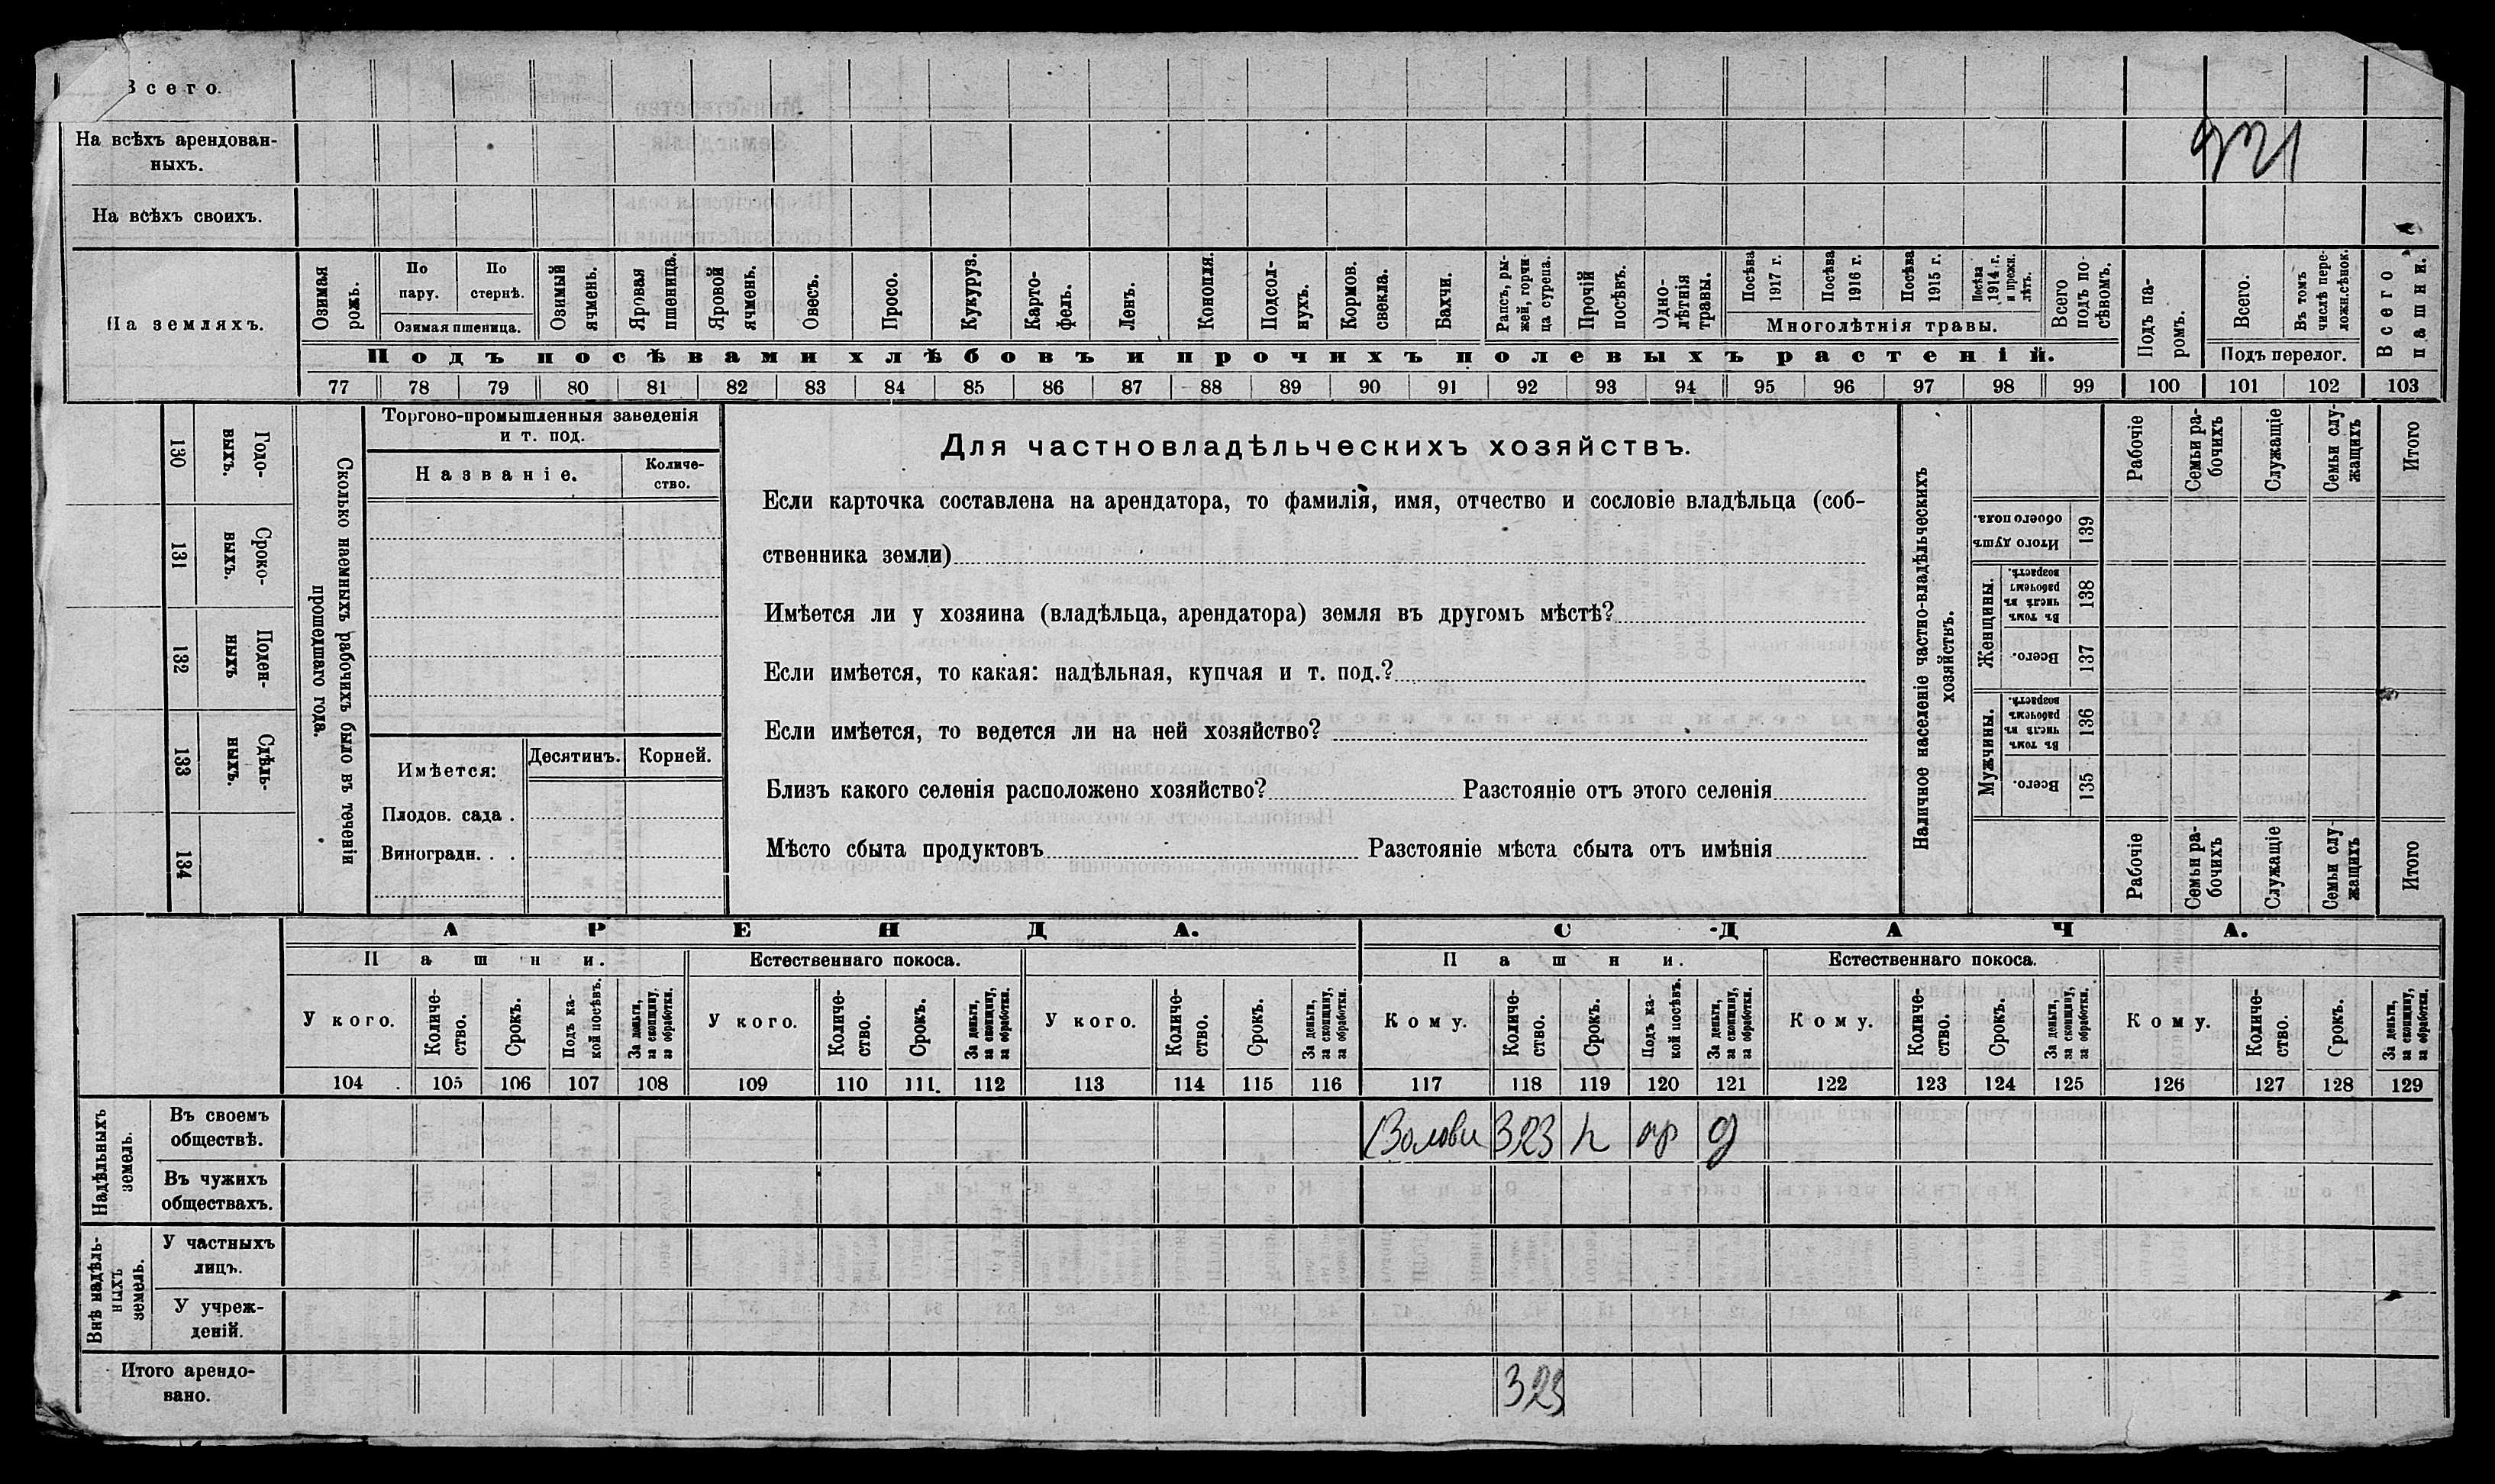 Всего.
На всѣхъ арендован-
ныхъ.
921
На всѣхъ своихъ.
На земляхъ.
Озимая рожь.
По пару.
По стернѣ.
Озимая пшеница.
Озимый ячмень.
Яровая пшеница.
Яровой ячмень.
Овесъ.
Просо.
Кукуруз.
Карто-
фель.
Ленъ.
Конопля.
Подсол-
нухъ.
Кормов. свекла.
Бахчи.
Рапсъ, ры-
жей, горчи-
ца сурепа.
Прочій посѣвъ.
Одно-
лѣтнія травы.
Посѣва 1917 г.
Посѣва 1916 г.
Посѣва 1915 г.
Посѣва 1914 г. и прежн. лѣтъ.
Многолѣтнія травы.
Всего подъ по-
сѣвомъ.
Подъ посѣвами хлѣбовъ и прочихъ полевыхъ растеній.
Подъ па-
ромъ.
Всего.
Въ томъ числѣ пере-
ложн.сѣнок.
Подъ перелог.
Всего пашни.
77 78 79 80 81 82 83 84 85 86 87 88 89 90 91 92 93 94 95 96 97 98 99 100 101 102 103
130
Годо-
выхъ.
131
Сроко-
выхъ.
132
Поден-
ныхъ
133
Сдѣль-
ныхъ.
134
Сколько наемныхъ рабочихъ было въ теченіи
прошедшаго года.
Торгово-промышленныя заведенія
и т. под.
Названіе.
Количе-
ство.
Имѣется:
Десятинъ.
Корней.
Плодов. сада .
Виноградн. . .
Для частновладѣльческихъ хозяйствъ.
Если карточка составлена на арендатора, то фамилія, имя, отчество и сословіе владѣльца (соб-
ственника земли)
Имѣется ли у хозяина (владѣльца, арендатора) земля въ другомъ мѣстѣ?
Если имѣется, то какая: надѣльная, купчая и т. под.?
Если имѣется, то ведется ли на ней хозяйство?
Близъ какого селенія расположено хозяйство? Разстояніе отъ этого селенія
Мѣсто сбыта продуктовъ Разстояніе мѣста сбыта отъ имѣнія
Наличное населеніе частно-владѣльческихъ
хозяйствъ.
Рабочіе
Семьи ра-
бочихъ
Служащіе
Семьи слу-
жащихъ
Итого
Итого душъ
обоего пола.
139
Женщины.
Въ томъ числѣ въ рабочемъ возрастѣ.
138
Всего.
137
Мужчины.
Въ томъ числѣ въ рабочемъ возрастѣ.
136
Всего.
135
Рабочіе
Семьи ра-
бочихъ
Служащіе
Семьи слу-
жащихъ
Итого
АРЕНДА.
СДАЧА.
Пашни.
Естественнаго покоса.
Пашни.
Естественнаго покоса.
У кого.
Количе-
ство.
Срокъ.
Подъ ка-
кой посѣвъ.
За деньги, за скопщину, за обработки.
У кого.
Количе-
ство.
Срокъ.
За деньги, за скопщину, за обработки.
У кого.
Количе-
ство.
Срокъ.
За деньги, за скопщину, за обработки.
Кому.
Количе-
ство.
Срокъ.
Подъ ка-
кой посѣвъ.
За деньги, за скопщину, за обработки.
Кому.
Количе-
ство.
Срокъ.
За деньги, за скопщину, за обработки.
Кому.
Количе-
ство.
Срокъ.
За деньги, за скопщину, за обработки.
104 105 106 107 108 109 110 111. 112 113 114 115 116 117 118 119 120 121 122 123 124 125 126 127 128 129
Надѣльныхъ земель.
Въ своемъ
обществѣ.
323
Въ чужихъ
обществахъ.
Внѣ надѣль-
ныхъ земель.
У частныхъ
лицъ.
У учреж-
деній.
Итого арендо-
вано.
323